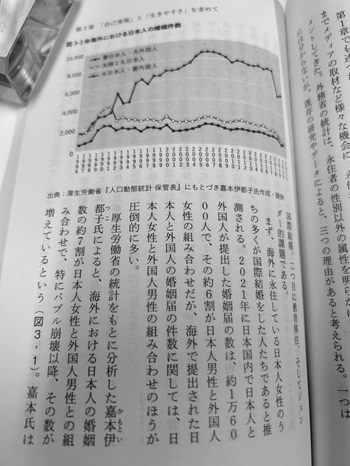 第3章 「自己実現」と「生きやすさ」を求めて
海外における日本人の婚姻件数
10,000
8,000
6,000
4,000
2,000
0
妻日本人・夫外国人
夫妻とも日本人
夫日本人・妻外国人
出典:厚生労働省『人口動態統計 保管表』にもとづき嘉本伊都子氏作成・提供
第1章でも述べ
までメディアの取材など様々な機会に、永住
メントしてきた。外務省の統計は、永住者の性別以外の属性を明らか
には分からないが、既存の研究やデータによると、三つの理由があると考えられる。一つは
国際結婚、二つ目に教育移住、そしてジェン
ダー的課題である。
まず、海外に永住している日本人女性のう
ちの多くが国際結婚をした人たちであると推
測される。2021年に日本国内で日本人と
外国人が提出した婚姻届の数は、約1万60
00人で、その約6割が日本人男性と外国人
女性の組み合わせだが、海外で提出された日
本人と外国人の婚姻届の件数に関しては、日
本人女性と外国人男性の組み合わせのほうが
圧倒的に多い。
厚生労働省の統計をもとに分析した嘉本伊
かもとい
都子氏によると、海外における日本人の婚姻
つこ
数の約7割が日本人女性と外国人男性との組
み合わせで、特にバブル崩壊以降、その数が
増えているという(図3‐1)。嘉本氏は